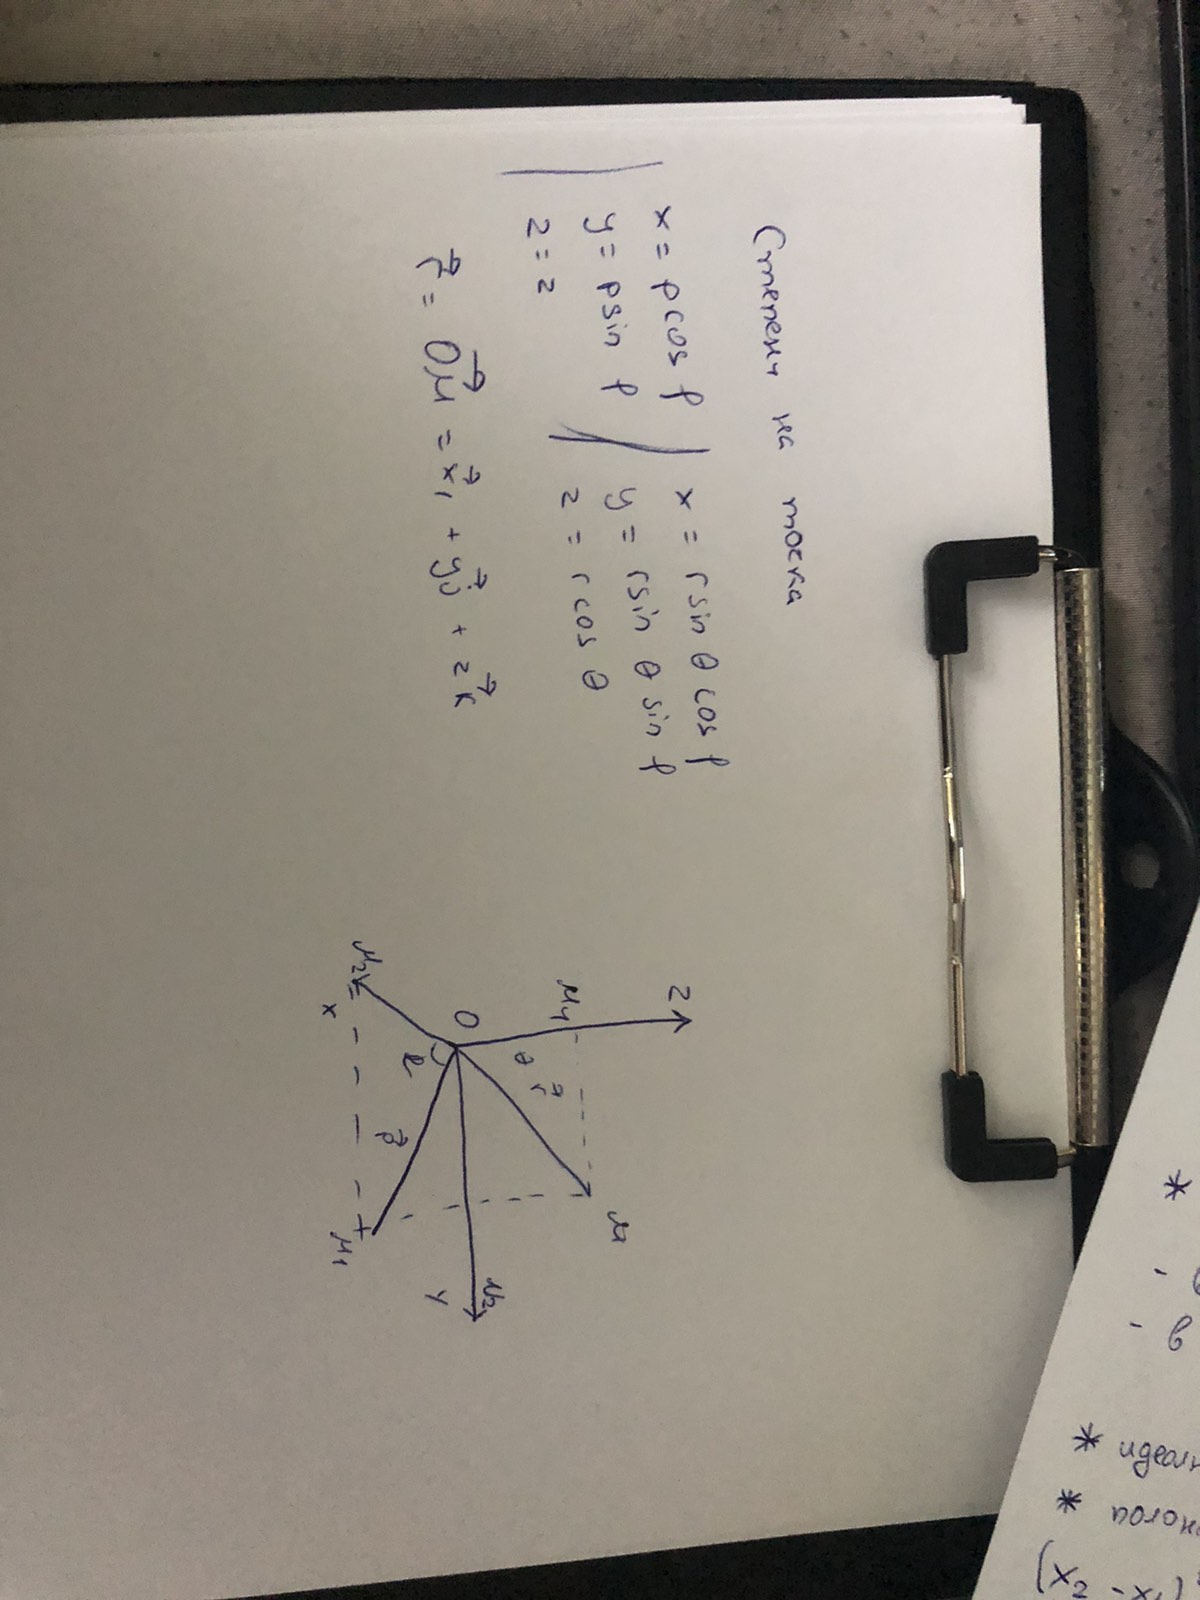 Степени на точка
x = ρcos φ
y = ρsin φ
z = z
x = rsin θ cos φ
y = rsin θ sin φ
z = r cos θ
r⃗ = OM⃗ = xi⃗ + yj⃗ + zk⃗
z
M4
O
θ
r⃗
M
M2
x
φ
ρ⃗
M1
M3
y
*
*
*
(x₂ - x₁)